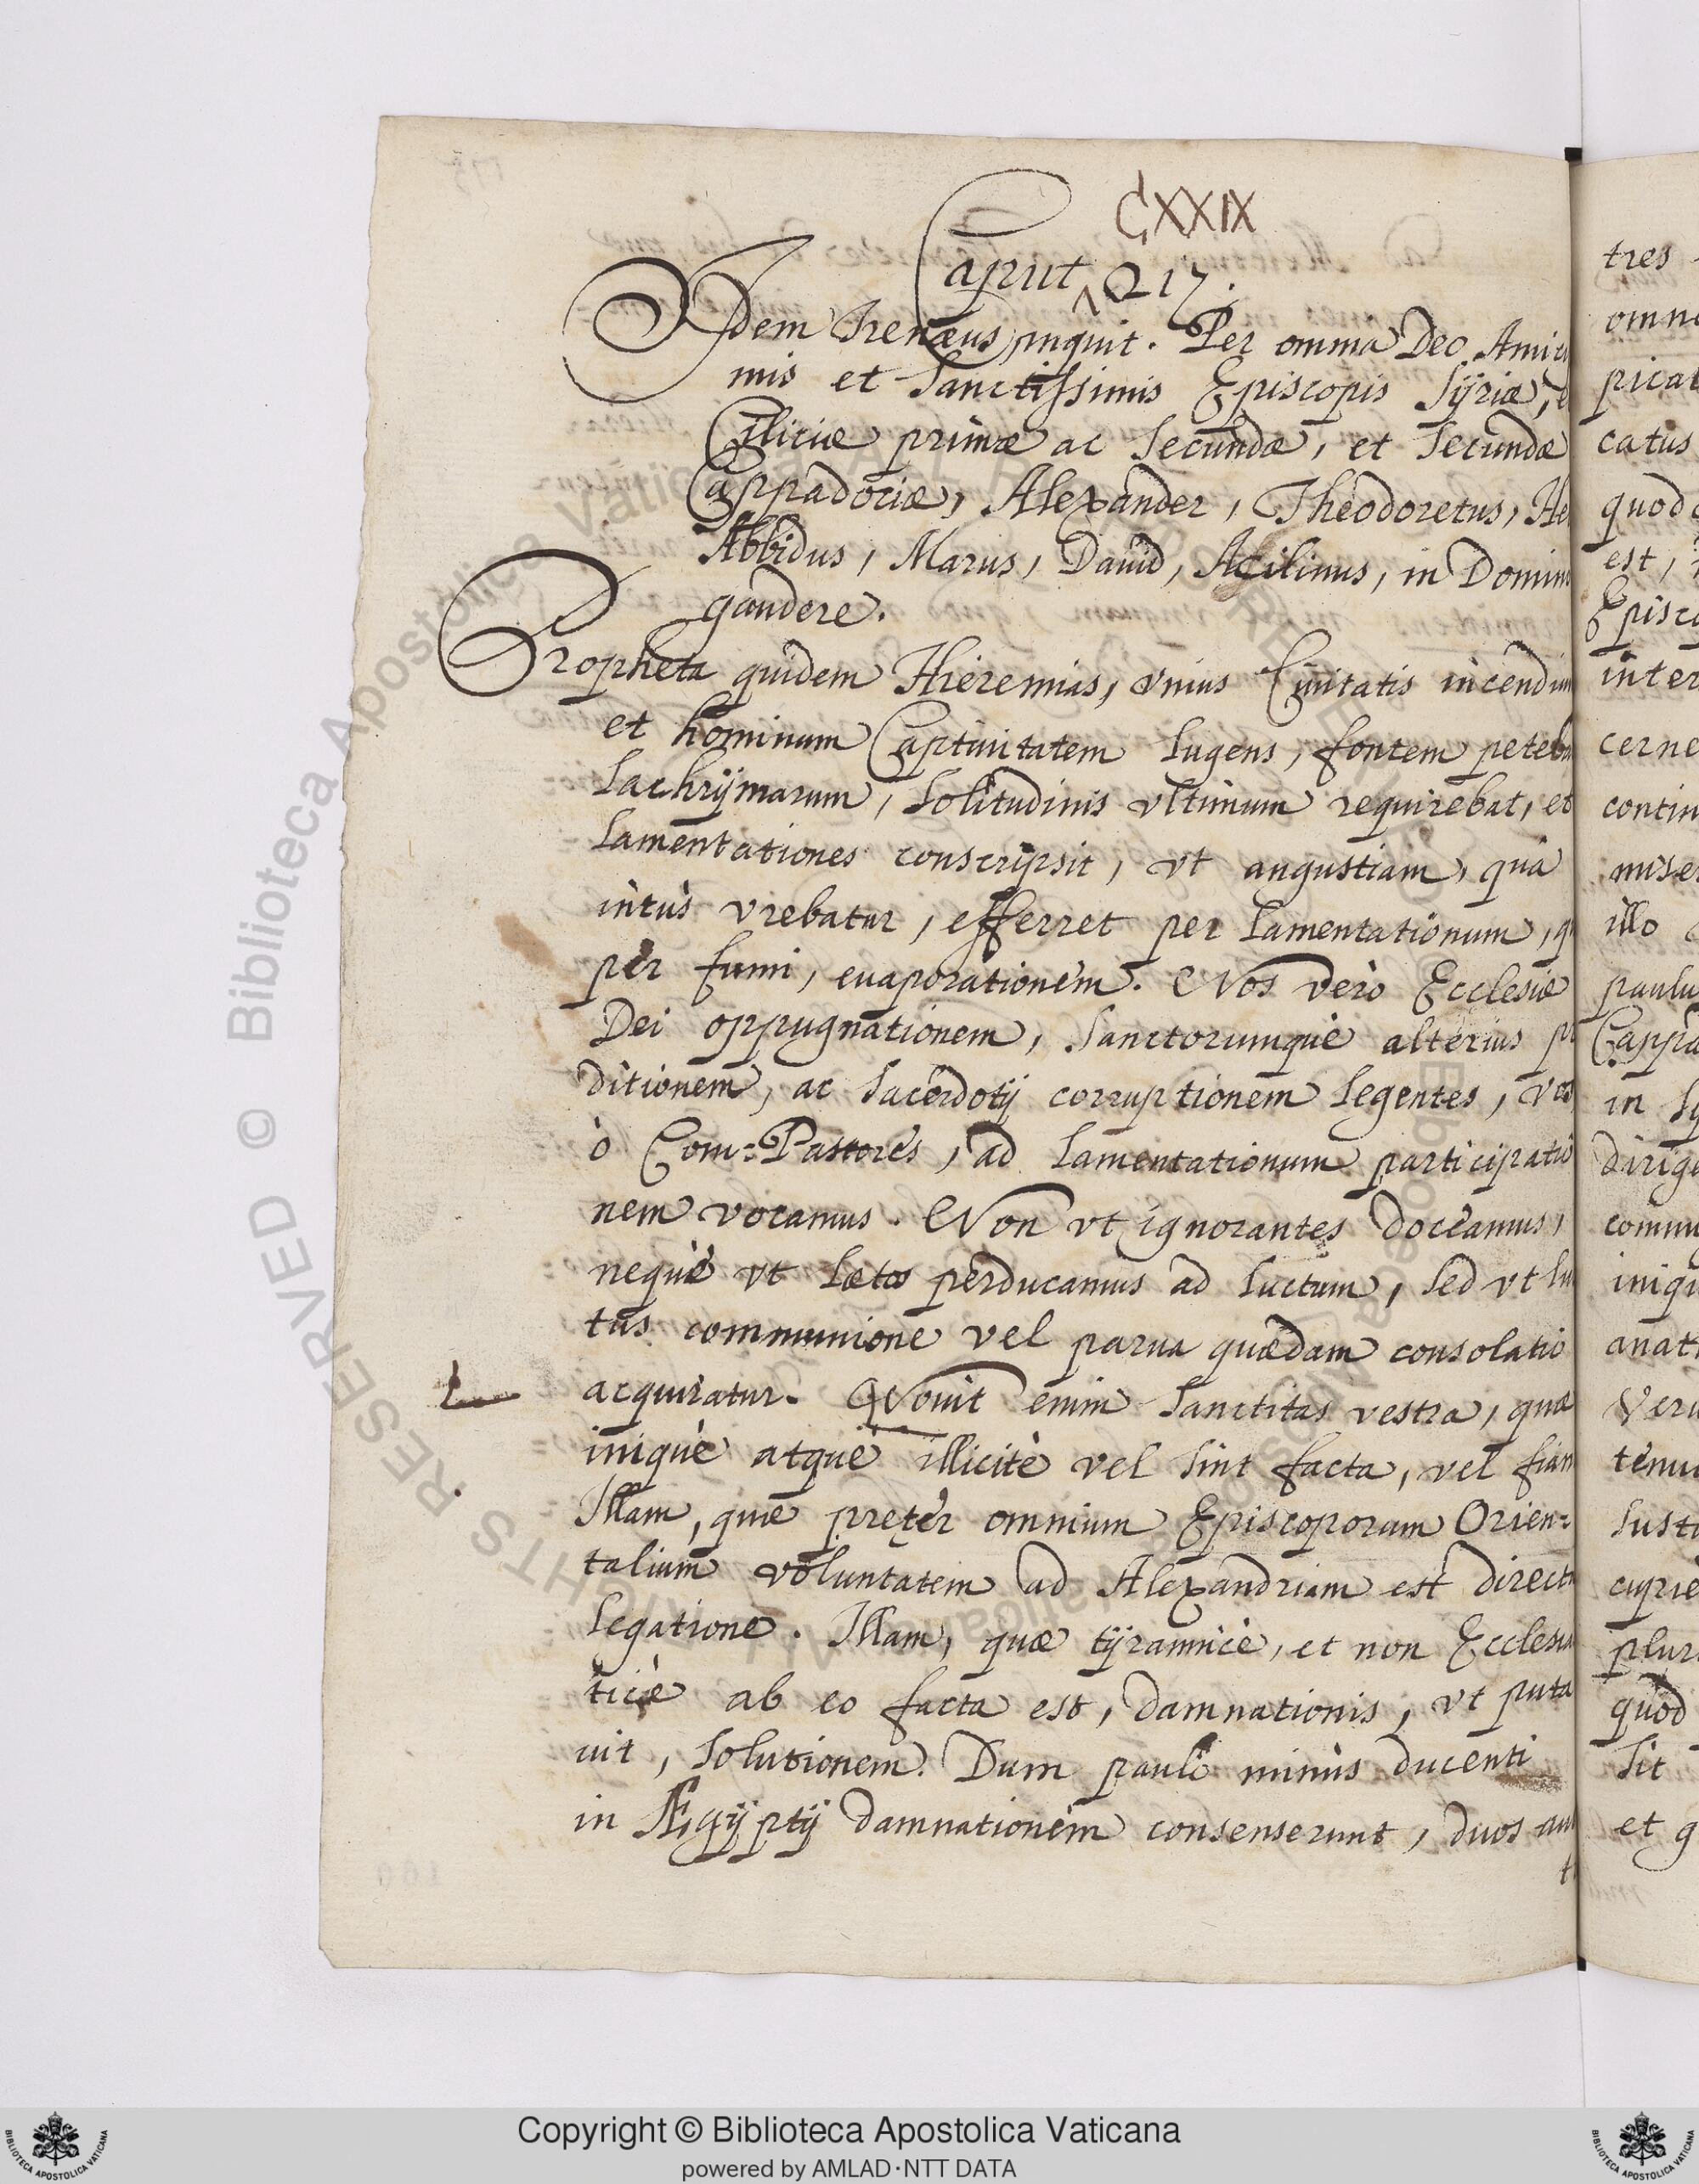 CXXIX
Caput 217.
Idem Irenæus inquit. Per omnia Deo Amicis
mis et Sanctissimis Episcopis Syriæ, e
Ciliciæ primæ ac Secundæ, et Secundæ
Cappadociæ, Alexander, Theodoretus, He
Abbidus, Marus, Dauid, Acilinus, in Domino
gaudere.
Propheta quidem Hieremias, vnius Ciuitatis incendium
et hominum Captiuitatem lugens, fontem peteba
lachrÿmarum, Solitudinis vltimum requirebat, et
lamentationes conscripsit, vt angustiam, qua
intùs vrebatur, efferret per lamentationum, q
per fumi, euaporationem. Nos verò Ecclesiæ
Dei oppugnationem, Sanctorumque alterius p
ditionem, ac Sacerdotij corruptionem legentes, vos
ò Com=Pastores, ad lamentationum participatio
nem vocamus. Non vt ignorantes doceamus,
neque vt lætos perducamus ad luctum, Sed vt lu
tus communione vel parua quædam consolatio
acquiratur. Nouit enim Sanctitas vestra, quæ
iniquè atque illicitè vel Sint facta, vel fian
Illam, quæ pręter omnium Episcoporum Orien=
talium voluntatem ad Alexandriam est direct
legatione. Illam, quæ tÿrannicè, et non Ecclesia
ticè ab eo facta est, damnationis, vt puta
uit, Solutionem. Dum paulò minùs ducenti
in Ægÿptij damnationem consenserunt, duos au
tres
omn
picat
catus
quod
est,
Episco
inter
cerne
contin
miser
illo
paulu
Cappa
in Sy
dirige
commu
iniqu
anat
Veru
tenu
Susti
cupie
plur
quod
Sit
et q
Copyright © Biblioteca Apostolica Vaticana
powered by AMLAD·NTT DATA